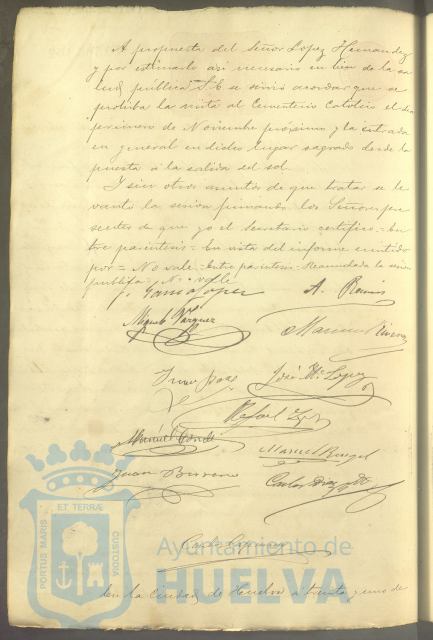 A propuesta del Señor Lopez Hernandez
y por estimarlo así necesario en bien de la sa-
lud pública S.E. se sirvió acordar que se
prohiba la visita al Cementerio Católico el dia
primero de Noviembre próximo y la entrada
en general en dicho lugar sagrado desde la
puesta á la salida del sol.
Y sin otros asuntos de que tratar se le-
vantó la sesion firmando los Señores pre-
sentes de que yo el Secretario certifico = En-
tre parentesis = En vista del informe emitido
por = No vale = Entre parentesis = Reanudada la sesion
publica = No vale
J. Garcia Lopez
A. Ramis
Miguel Vazquez
José Mª Lopez
Rafael
Manuel Rangel
Juan
Carlos Diaz
Ayuntamiento de
HUELVA
ET TERRÆ
PORTUS MARIS
CUSTODIA
En la Ciudad de Huelva a treinta y uno de